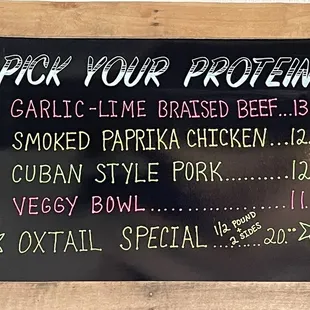 PICK YOUR PROTEIN
GARLIC-LIME BRAISED BEEF...13
SMOKED PAPRIKA CHICKEN...12.
CUBAN STYLE PORK..........12
VEGGY BOWL....................11.
OXTAIL SPECIAL 1/2 POUND + 2 SIDES ..........20.00